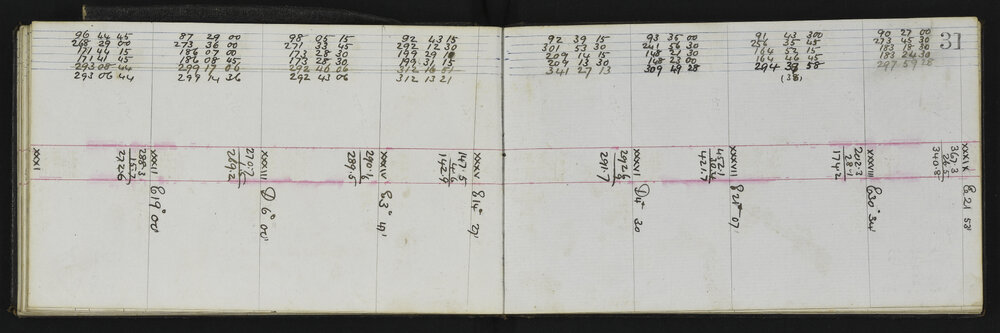 96 44 45 87 29 00 98 05 15 92 43 15
268 29 00 273 36 00 271 33 45 292 12 30
171 44 15 186 07 00 173 28 30 199 29
171 41 45 186 08 45 173 28 30 199 31 15
293 08 44 299 292
293 06 44 299 14 36 292 43 06 312 13 21
XXXI
XXXII
288.3
15.7
272.6
E 19° 00'
270.7
289.2
D 6° 00'
XXXIV
290.6
289.5
E 3° 41'
XXXV
147.5
4.6
142.9
E 14° 27'
92 39 15 93 36 00 91 43 300 90 27 00
301 53 30 241 56 30 256 35 45 273 45 30
209 14 15 148 21 30 164 52 15 183 18 30
209 13 30 148 23 00 164 46 45 183
341 27 13 309 49 28 294 58 297 59 28
(38)
31
XXXVI
292.6
291.7
D 4° 30
XXXVII
452.1
30.4
421.7
E 21° 07'
XXXVIII
202.3
28.1
174.2
E 30° 34'
XXXIX
367.3
26.5
340.8
E 21 53'